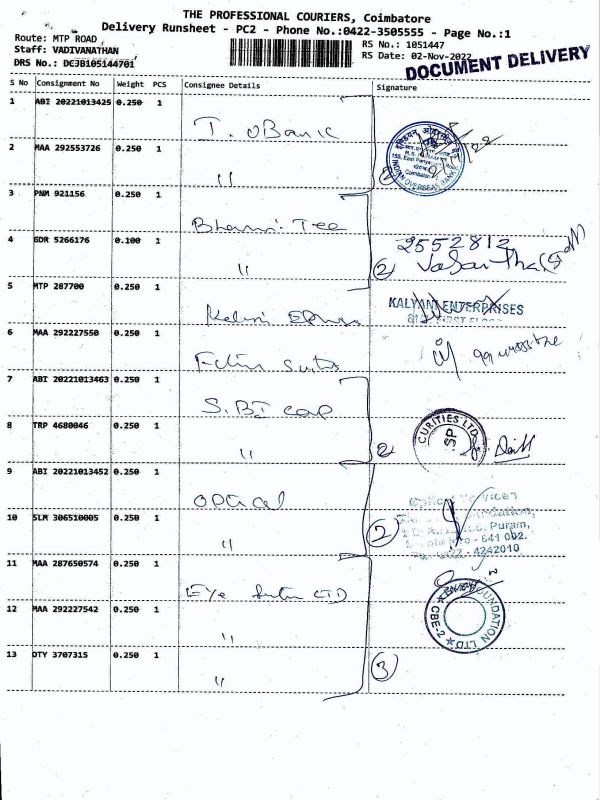 THE PROFESSIONAL COURIERS, Coimbatore
Delivery Runsheet - PC2 - Phone No.:0422-3505555 - Page No.:1
Route: MTP ROAD
RS No.: 1051447
Staff: VADIVANATHAN
RS Date: 02-Nov-2022
DRS No.: DCJB105144701
DOCUMENT DELIVERY
S No Consignment No Weight PCS Consignee Details Signature
1 ABI 20221013425 0.250 1
I. OBank
2 MAA 292553726 0.250 1
"
INDIAN OVERSEAS BANK
3 PNM 921156 0.250 1
Tee
4 GDR 5266176 0.100 1
"
2552812
②
5 MTP 287700 0.250 1
KALYANI ENTERPRISES
FIRST FLOOR
6 MAA 292227550 0.250 1
7 ABI 20221013463 0.250 1
S.BI cap
8 TRP 4680046 0.250 1
"
2
CURITIES LTD
SP
9 ABI 20221013452 0.250 1
optical
Optical Services
10 SLM 306510005 0.250 1
"
②
Puram,
641 002.
4242010
11 MAA 287650574 0.250 1
Eye LTD
FOUNDATION LTD
CBE-2
12 MAA 292227542 0.250 1
"
13 DTY 3707315 0.250 1
"
③